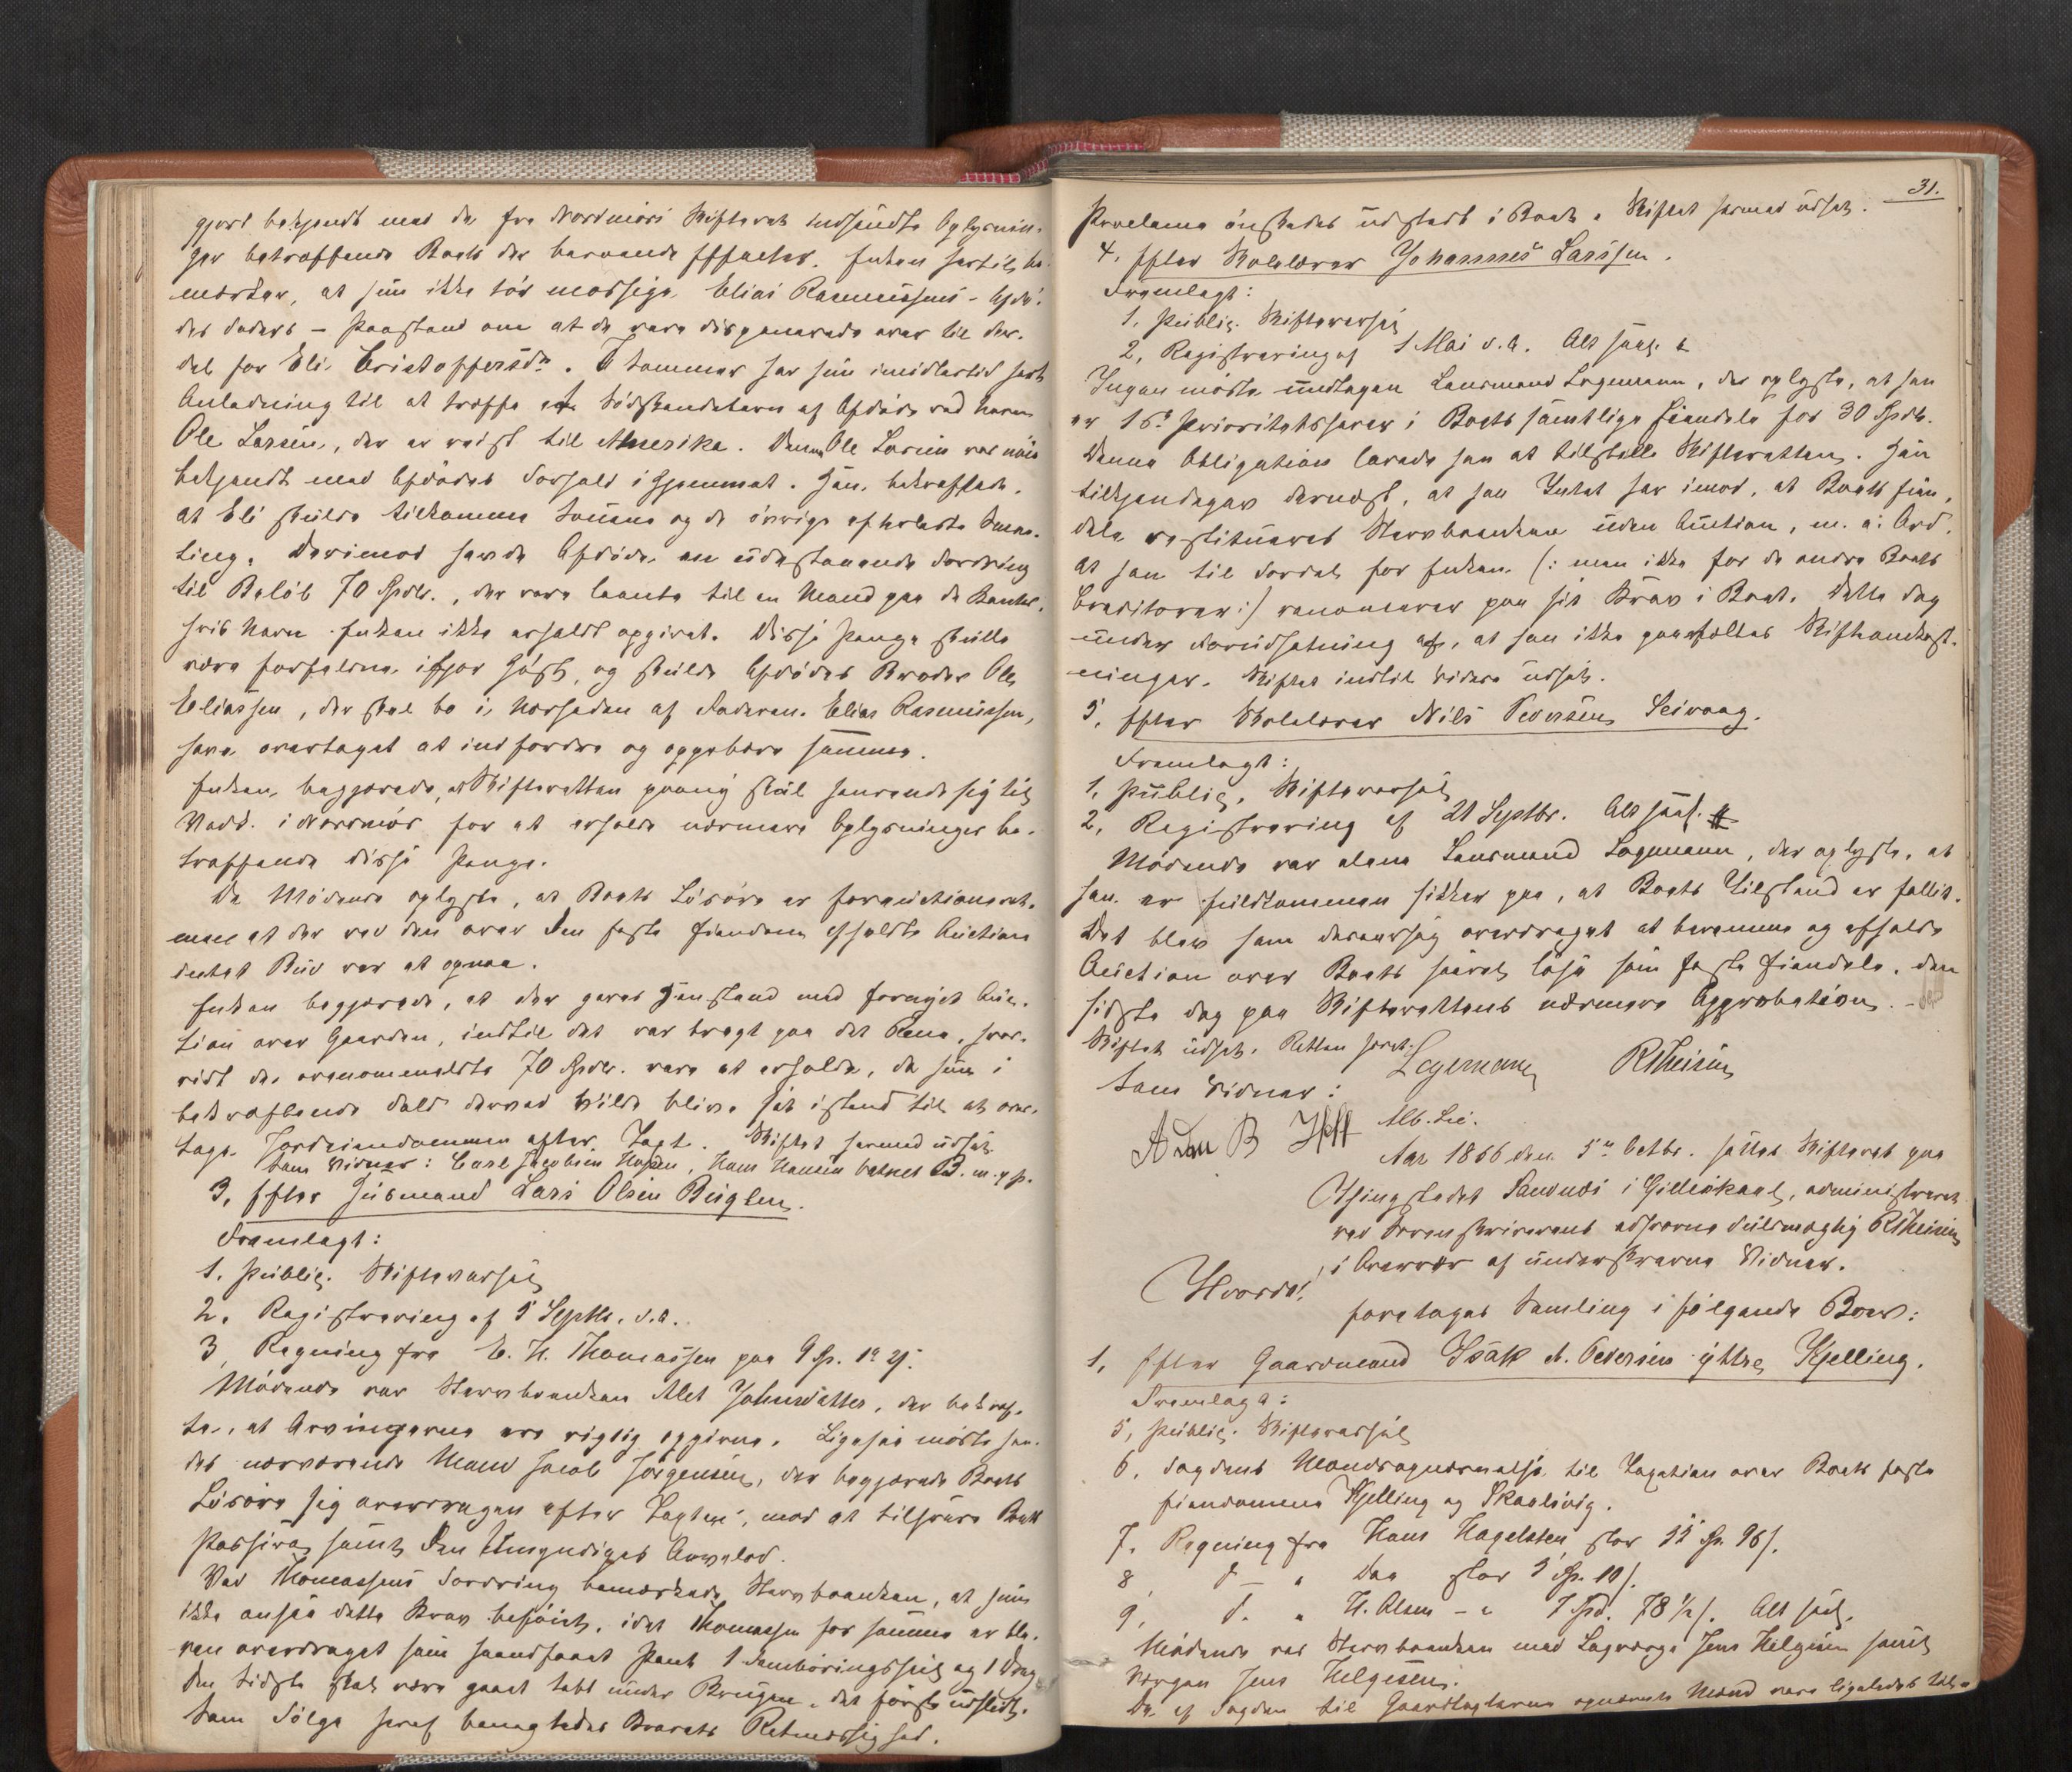 gjort bekjendt med de fra Nordmörs Skifteret indsendte Oplysnin-
ger betreffende Boets der beroende Effecter. Enken hertil be-
mærker, at hun ikke tör modsige Elias Rasmussens - Afdö-
des Faders - Paastand om at de vare disponerede over til For-
del for Eli Cristoffersdr. I Sommer har hun imidlertid havt
Anledning til at træffe et Södskendebarn af Afdöde ved Navn
Ole Larsen, der er reist til Amerika. Denne Ole Larsen var nöie
bekjendt med Afdödes Forhold i Hjemmet. Han bekræftede,
at Eli skulde tilkomme Sauene og de övrige afholdte Smaa-
ting. Derimod havde Afdöde en udestaaende Fordring
til Belöb 70 Spdlr., der vare laante til en Mand paa de Kanter,
hvis Navn Enken ikke erholdt opgivet. Disse Penge skulle
være forfaldne ifjor Höst, og skulde Afdödes Broder Ole
Eliassen, der skal bo i Nærheden af Faderen Elias Rasmussen,
have overtaget at indfordre og oppebære samme.
Enken begjærede, at Skifteretten paany skal henvende sig til
Vedk. i Nordmör for at erholde nærmere Oplysninger be-
træffende disse Penge.
De Mödende oplyste, at Boets Lösöre er forauctioneret,
men at der ved den over den faste Eiendom afholdte Auction
intet Bud var at opnaa.
Enken begjærede, at der gives Henstand med fornyet Auc-
tion over Gaarden, indtil det var bragt paa det Rene, hvor-
vidt de ovenommeldte 70 Spdlr. vare at erholde, da hun i
bekræftende Fald derved vilde blive sat istand til at over-
tage Jordeiendommen efter Taxt. Skiftet hermed udsat.
Som Vidner: Carl Jacobsen Hopen, Hans Hansen m. p. P.
3, Efter Husmand Lars Olsen Buglen.
Fremlagt:
1. Public. Skiftevarsel
2. Registrering af 5 Septbr. d. A.
3, Regning fra C. H. Thomassen paa 9 Sp. 1 2 ß.
Mödende var Stervboenken Alet Johnsdatter, der bekræf-
te, at Arvingerne ere rigtig opgivne. Ligesaa mödte hen-
des nærværende Mand Jacob Jörgensen, der begjærede Boets
Lösöre sig overdragen efter Taxten, mod at tilsvare Boets
Passiva samt den Umyndiges Arvelod.
Ved Thomassens Fordring bemærkede Stervboenken, at hun
ikke ansaa dette Krav beföiet, idet Thomassen for samme er ble-
ven overdraget som haandfaaet Pant 1 Somböringsseil og 1 Dræg
Den Sidste skal være gaaet tabt under Brugen, det förste udslidt.
Som Fölge heraf benegtedes Kravets Retmæssighed.
31.
Proclama önskedes udstedt i Boet. Skiftet hermed udsat.
4, Efter Skolelærer Johannes Larssen.
Fremlagt:
1. Public. Skiftevarsel
2, Registrering af 1 Mai d. A. Alt saal.
Ingen mödte undtagen Lensmand Lagemann, der oplyste, at han
er 1ste Prioritetshaver i Boets samtlige Eiendele for 30 Spdlr.
Denne Obligation lovede han at tilstille Skifteretten. Han
tilkjendegav dernæst, at han Intet har imod, at Boets Eien-
dele restitueres Stervboenken uden Auction, m. a. Ord,
at han til Fordel for Enken (: men ikke for de andre Boets
Creditorer :) renoncerer paa sit Krav i Boet. Dette dog
under Forudsætning af, at han ikke paafaldes Skifteomkost-
ninger. Skiftet indtil Videre udsat.
5, Efter Skolelærer Nils Pedersen Seivaag.
Fremlagt:
1, Public. Skiftevarsel
2, Registrering af 21 Septbr. Alt saal.
Mödende var alene Lensmand Lagemann, der oplyste, at
han er fuldkommen sikker paa, at Boets Tilstand er fallit.
Det blev ham overdraget at beramme og afholde
Auction over Boets saavel löse som faste Eiendele, den
sidste dog paa Skifterettens nærmere Approbation. -
Skiftet udsat. Retten hævet.
Lagemann RTheisen
Som Vidner:
Alb. Lie.
Aar 1866 den 5te Octbr. sattes Skifteret paa
Thingstedet Sandnæs i Gilleskaal, administreret
ved Sorenskriverens edsvorne Fuldmægtig RTheisen
i Overvær af underskrevne Vidner.
Hvorda!
foretages Samling i fölgende Boer:
1, Efter Gaardmand Isak A. Pedersen yttre Kjelling.
Fremlagt:
5, Public. Skiftevarsel
6, Fogdens Mandsopnævnelse til Taxation over Boets faste
Eiendomme Kjelling og Skaalsvig.
7, Regning fra Hans Hagelsten stor 11 Sp. 96 ß.
8, d - " Daa stor 5 Sp. 10 ß.
9, d. " H. Olsen - " 7 Spd. 78 1/2 ß. Alt saal.
Mödende var Stervboenken med Lagværge Jens Helgesen samt
Værgen Jens Helgesen.
De af Fogden til Gaardtaxterne opnævnte Mænd vare ligeledes til-